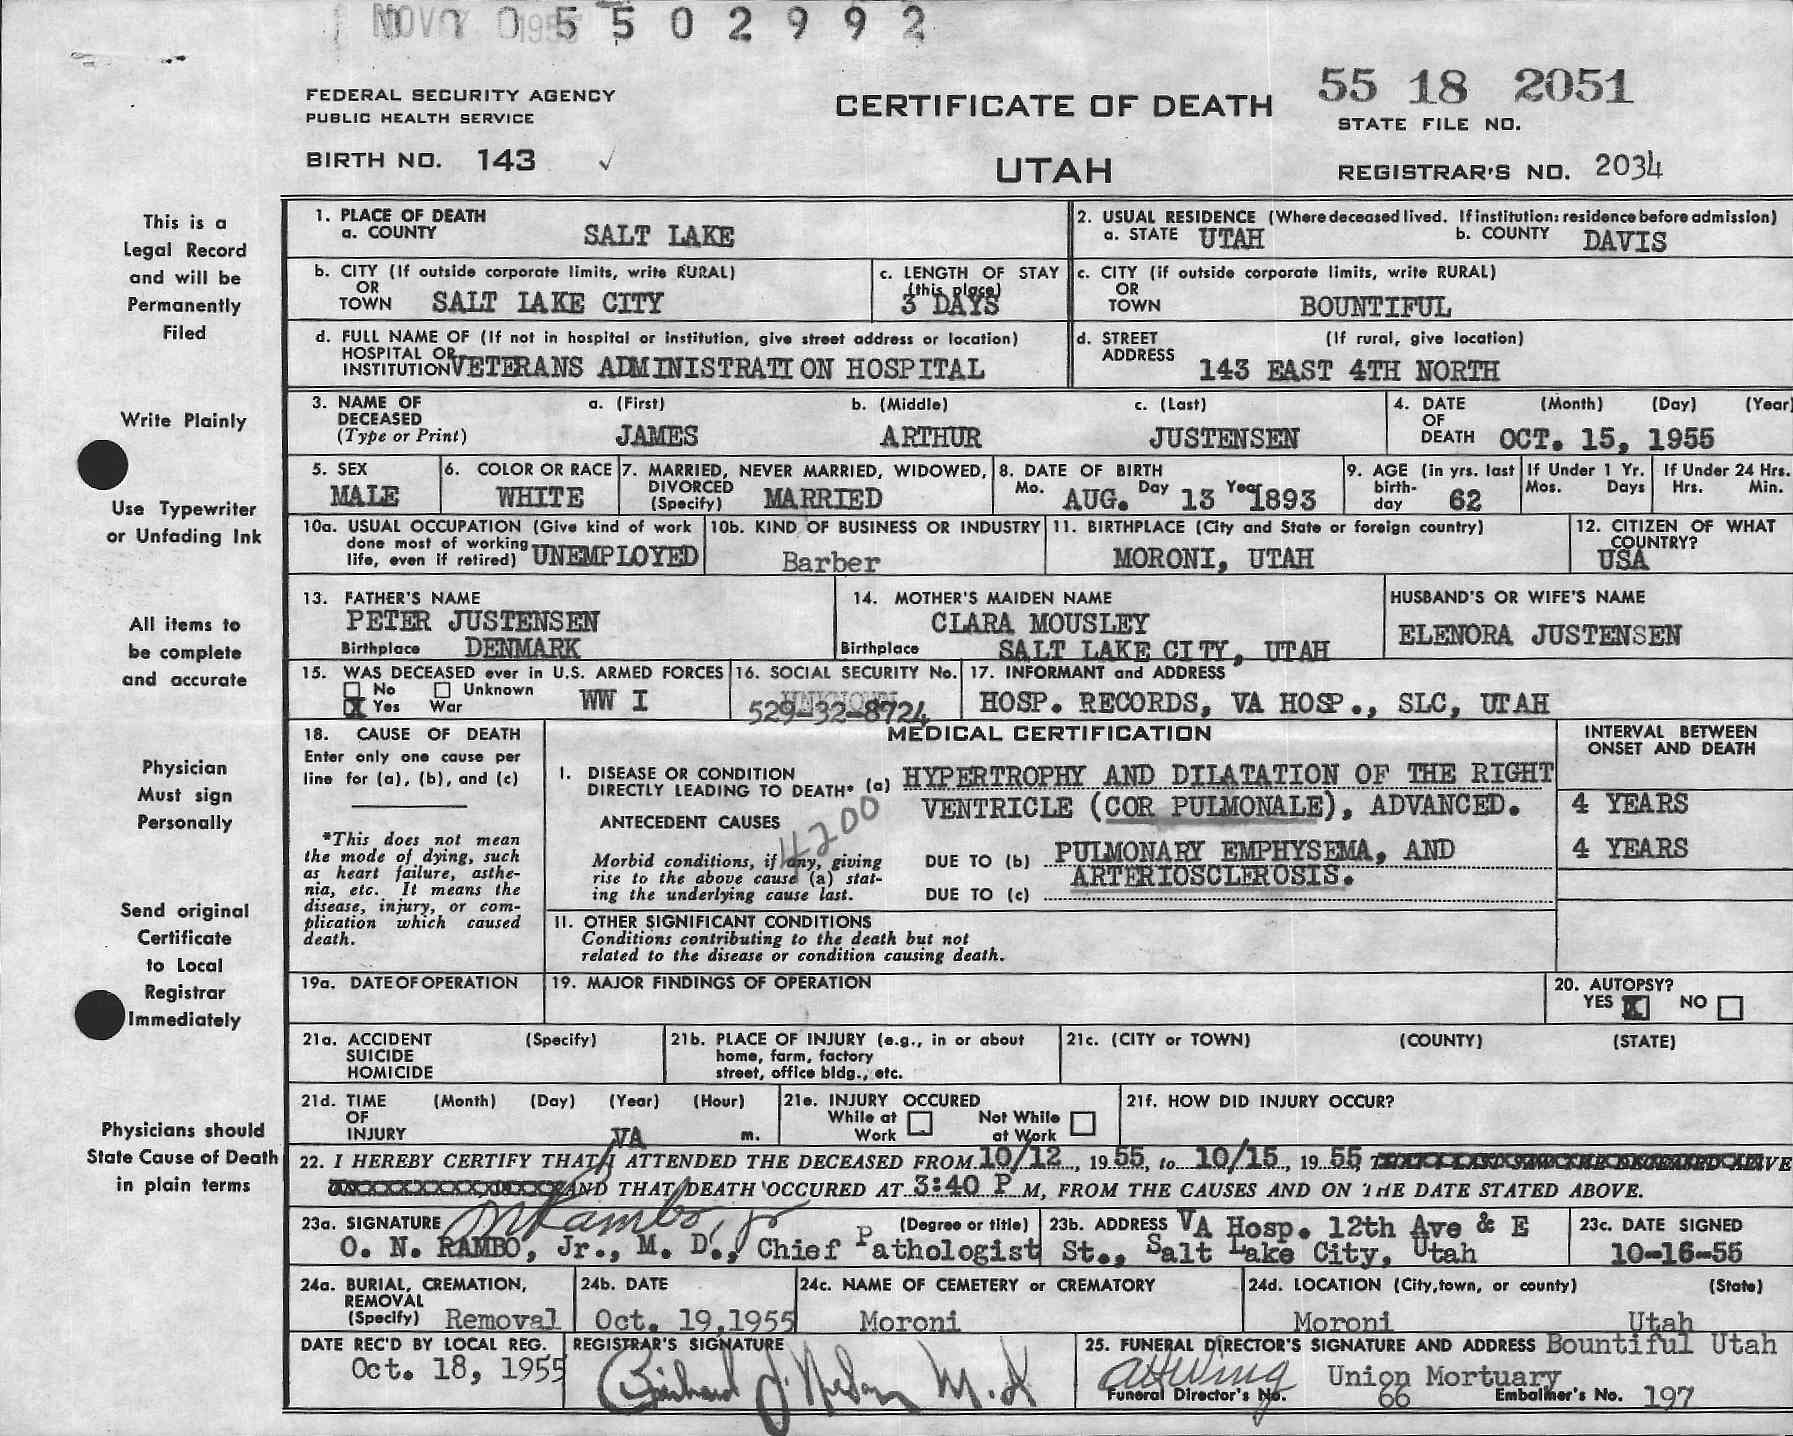 NOV 1955
5 5 0 2 9 9 2
FEDERAL SECURITY AGENCY
PUBLIC HEALTH SERVICE
BIRTH NO. 143 ✓
CERTIFICATE OF DEATH
UTAH
55 18 2051
STATE FILE NO.
REGISTRAR'S NO. 2034
This is a
Legal Record
and will be
Permanently
Filed
Write Plainly
Use Typewriter
or Unfading Ink
All items to
be complete
and accurate
Physician
Must sign
Personally
Send original
Certificate
to Local
Registrar
Immediately
Physicians should
State Cause of Death
in plain terms
1. PLACE OF DEATH
a. COUNTY SALT LAKE
2. USUAL RESIDENCE (Where deceased lived. If institution: residence before admission)
a. STATE UTAH b. COUNTY DAVIS
b. CITY (If outside corporate limits, write RURAL)
OR
TOWN SALT LAKE CITY
c. LENGTH OF STAY
(this place)
3 DAYS
c. CITY (if outside corporate limits, write RURAL)
OR
TOWN BOUNTIFUL
d. FULL NAME OF (If not in hospital or institution, give street address or location)
HOSPITAL OR
INSTITUTION VETERANS ADMINISTRATION HOSPITAL
d. STREET (If rural, give location)
ADDRESS 143 EAST 4TH NORTH
3. NAME OF a. (First) b. (Middle) c. (Last)
DECEASED
(Type or Print) JAMES ARTHUR JUSTENSEN
4. DATE (Month) (Day) (Year)
OF
DEATH OCT. 15, 1955
5. SEX
MALE
6. COLOR OR RACE
WHITE
7. MARRIED, NEVER MARRIED, WIDOWED,
DIVORCED
(Specify) MARRIED
8. DATE OF BIRTH
Mo. AUG. Day 13 Year 1893
9. AGE (in yrs. last
birth-
day 62
If Under 1 Yr.
Mos. Days
If Under 24 Hrs.
Hrs. Min.
10a. USUAL OCCUPATION (Give kind of work
done most of working
life, even if retired) UNEMPLOYED
10b. KIND OF BUSINESS OR INDUSTRY
Barber
11. BIRTHPLACE (City and State or foreign country)
MORONI, UTAH
12. CITIZEN OF WHAT
COUNTRY?
USA
13. FATHER'S NAME
PETER JUSTENSEN
Birthplace DENMARK
14. MOTHER'S MAIDEN NAME
CLARA MOUSLEY
Birthplace SALT LAKE CITY, UTAH
HUSBAND'S OR WIFE'S NAME
ELENORA JUSTENSEN
15. WAS DECEASED ever in U.S. ARMED FORCES
No Unknown
X Yes War WW I
16. SOCIAL SECURITY No.
UNKNOWN
529-32-8724
17. INFORMANT and ADDRESS
HOSP. RECORDS, VA HOSP., SLC, UTAH
18. CAUSE OF DEATH
Enter only one cause per
line for (a), (b), and (c)
*This does not mean
the mode of dying, such
as heart failure, asthe-
nia, etc. It means the
disease, injury, or com-
plication which caused
death.
MEDICAL CERTIFICATION
INTERVAL BETWEEN
ONSET AND DEATH
I. DISEASE OR CONDITION
DIRECTLY LEADING TO DEATH* (a) HYPERTROPHY AND DILATATION OF THE RIGHT
VENTRICLE (COR PULMONALE), ADVANCED. 4 YEARS
4200
ANTECEDENT CAUSES
Morbid conditions, if any, giving
rise to the above cause (a) stat-
ing the underlying cause last.
DUE TO (b) PULMONARY EMPHYSEMA, AND 4 YEARS
ARTERIOSCLEROSIS.
DUE TO (c)
II. OTHER SIGNIFICANT CONDITIONS
Conditions contributing to the death but not
related to the disease or condition causing death.
19a. DATE OF OPERATION
19. MAJOR FINDINGS OF OPERATION
20. AUTOPSY?
YES X NO
21a. ACCIDENT (Specify)
SUICIDE
HOMICIDE
21b. PLACE OF INJURY (e.g., in or about
home, farm, factory
street, office bldg., etc.
21c. (CITY or TOWN) (COUNTY) (STATE)
21d. TIME (Month) (Day) (Year) (Hour)
OF
INJURY m.
21e. INJURY OCCURED
While at Work Not While at Work
21f. HOW DID INJURY OCCUR?
VA
22. I HEREBY CERTIFY THAT I ATTENDED THE DECEASED FROM 10/12, 1955, to 10/15, 1955, THAT I LAST SAW THE DECEASED ALIVE
AND THAT DEATH OCCURED AT 3:40 P M, FROM THE CAUSES AND ON THE DATE STATED ABOVE.
23a. SIGNATURE ON Rambo, Jr (Degree or title)
O. N. RAMBO, Jr., M. D., Chief Pathologist
23b. ADDRESS VA Hosp. 12th Ave & E
St., Salt Lake City, Utah
23c. DATE SIGNED
10-16-55
24a. BURIAL, CREMATION,
REMOVAL
(Specify) Removal
24b. DATE
Oct. 19,1955
24c. NAME OF CEMETERY or CREMATORY
Moroni
24d. LOCATION (City, town, or county) (State)
Moroni Utah
DATE REC'D BY LOCAL REG.
Oct. 18, 1955
REGISTRAR'S SIGNATURE
25. FUNERAL DIRECTOR'S SIGNATURE AND ADDRESS Bountiful Utah
Union Mortuary
Funeral Director's No. 66 Embalmer's No. 197